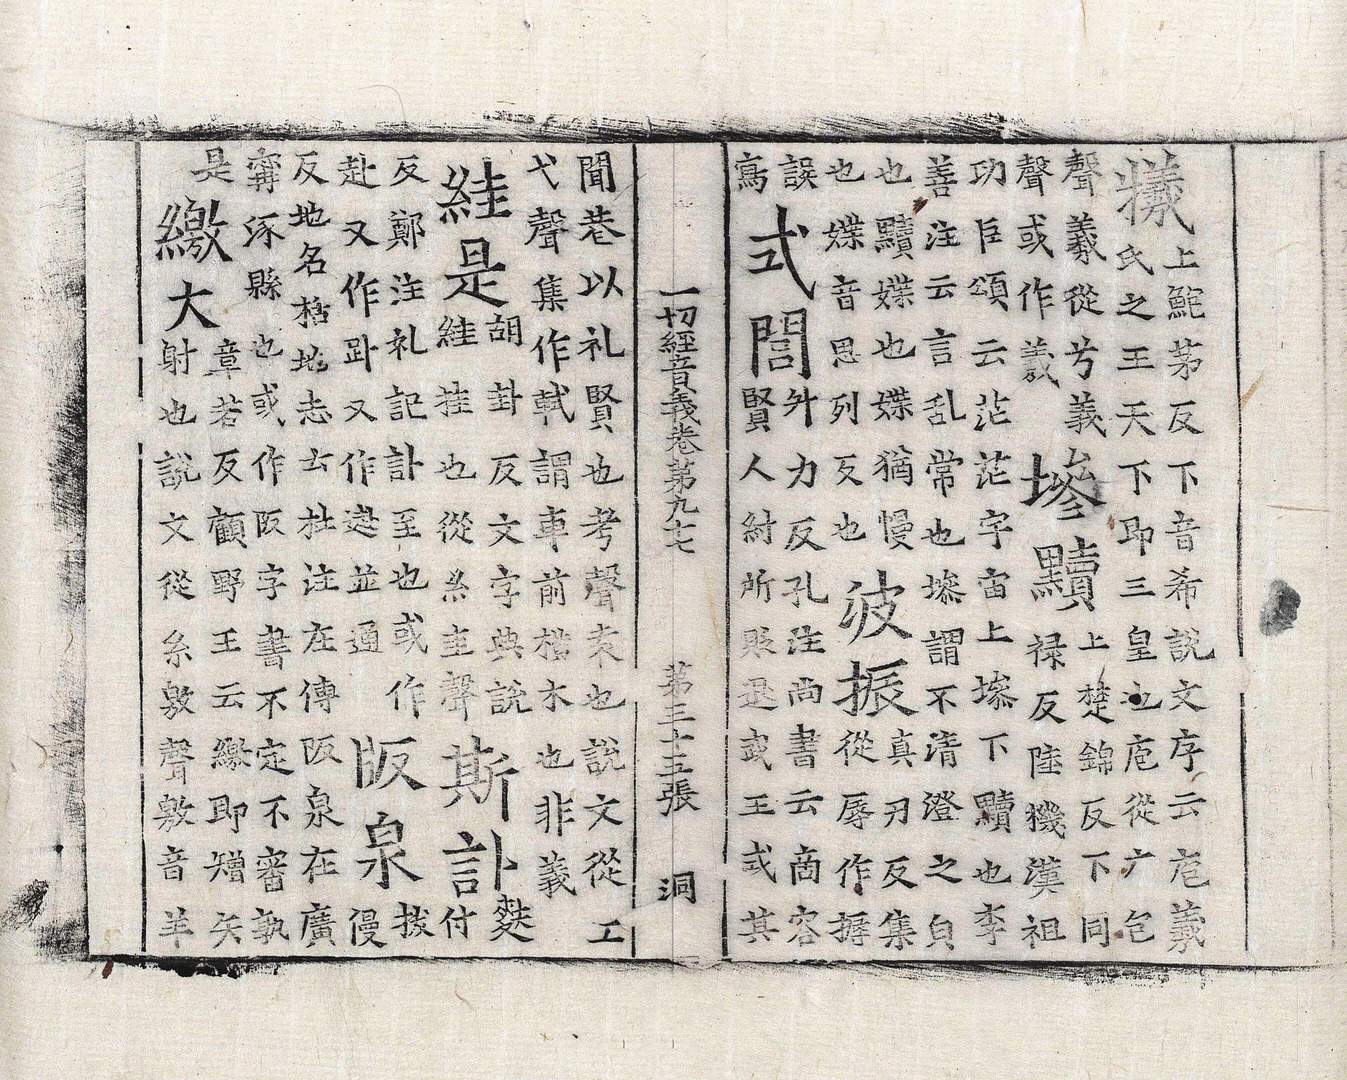 犧上鉈茅反下音希說文序云庖羲
氏之王天下即三皇也庖從广包
聲羲從兮義
聲或作羲
墋黷上楚錦反下同
禄反陸機漢祖
功臣頌云茫茫字宙上墋下黷也李
善注云言乱常也墋謂不清澄之皃
也黷媟也媟猶慢
也媟音思列反也
彼振真刃反集
從辱作搙
誤
寫
式閭外力反孔注尚書云商容
賢人紂所貶退武王式其
一切經音義卷第九十七 第三十五張 洞
閭巷以礼賢也考聲表也說文從工
弋聲集作軾謂車前橫木也非義
絓是胡卦反文字典說
絓挂也從糸圭聲
斯訃麩
付
反鄭注礼記訃至也或作
赴又作趴又作逩並通
阪泉拔
慢
反地名栝地志云杜注左傳阪泉在廣
甯涿縣也或作阪字書不定不審孰
是
繳大章若反顧野王云繳即矰矢
射也說文從糸敫聲敫音羊